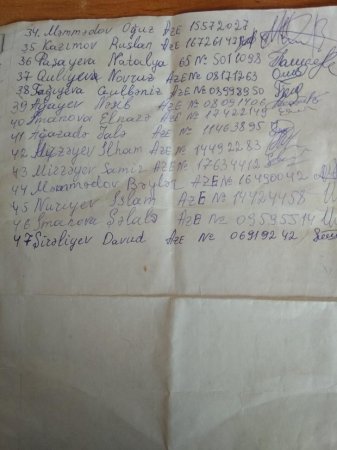 34. Məmmədov Oğuz AzE 15572027
35 Kazımov Ruslan AzE
36 Paşayeva Natalya 65 № 5011098
37 Quliyeva Novraz AzE № 08171763
38 Gülbəniz AzE № 03993950
39 Ağayev № 08091406
40 Imanova Elnarə AzE № 17422149
41 Ağazadə Jalə 11463895
42 Mirzəyev Ilham AzE № 14492283
43 Mirzəyev Samir AzE № 17634412
44 Məmmədov Bəylər AzE № 16490042
45 Nuriyev Islam AzE № 14424458
46 Imanova Şəlalə AzE № 09595514
47 Şirəliyev Davud AzE № 06919242